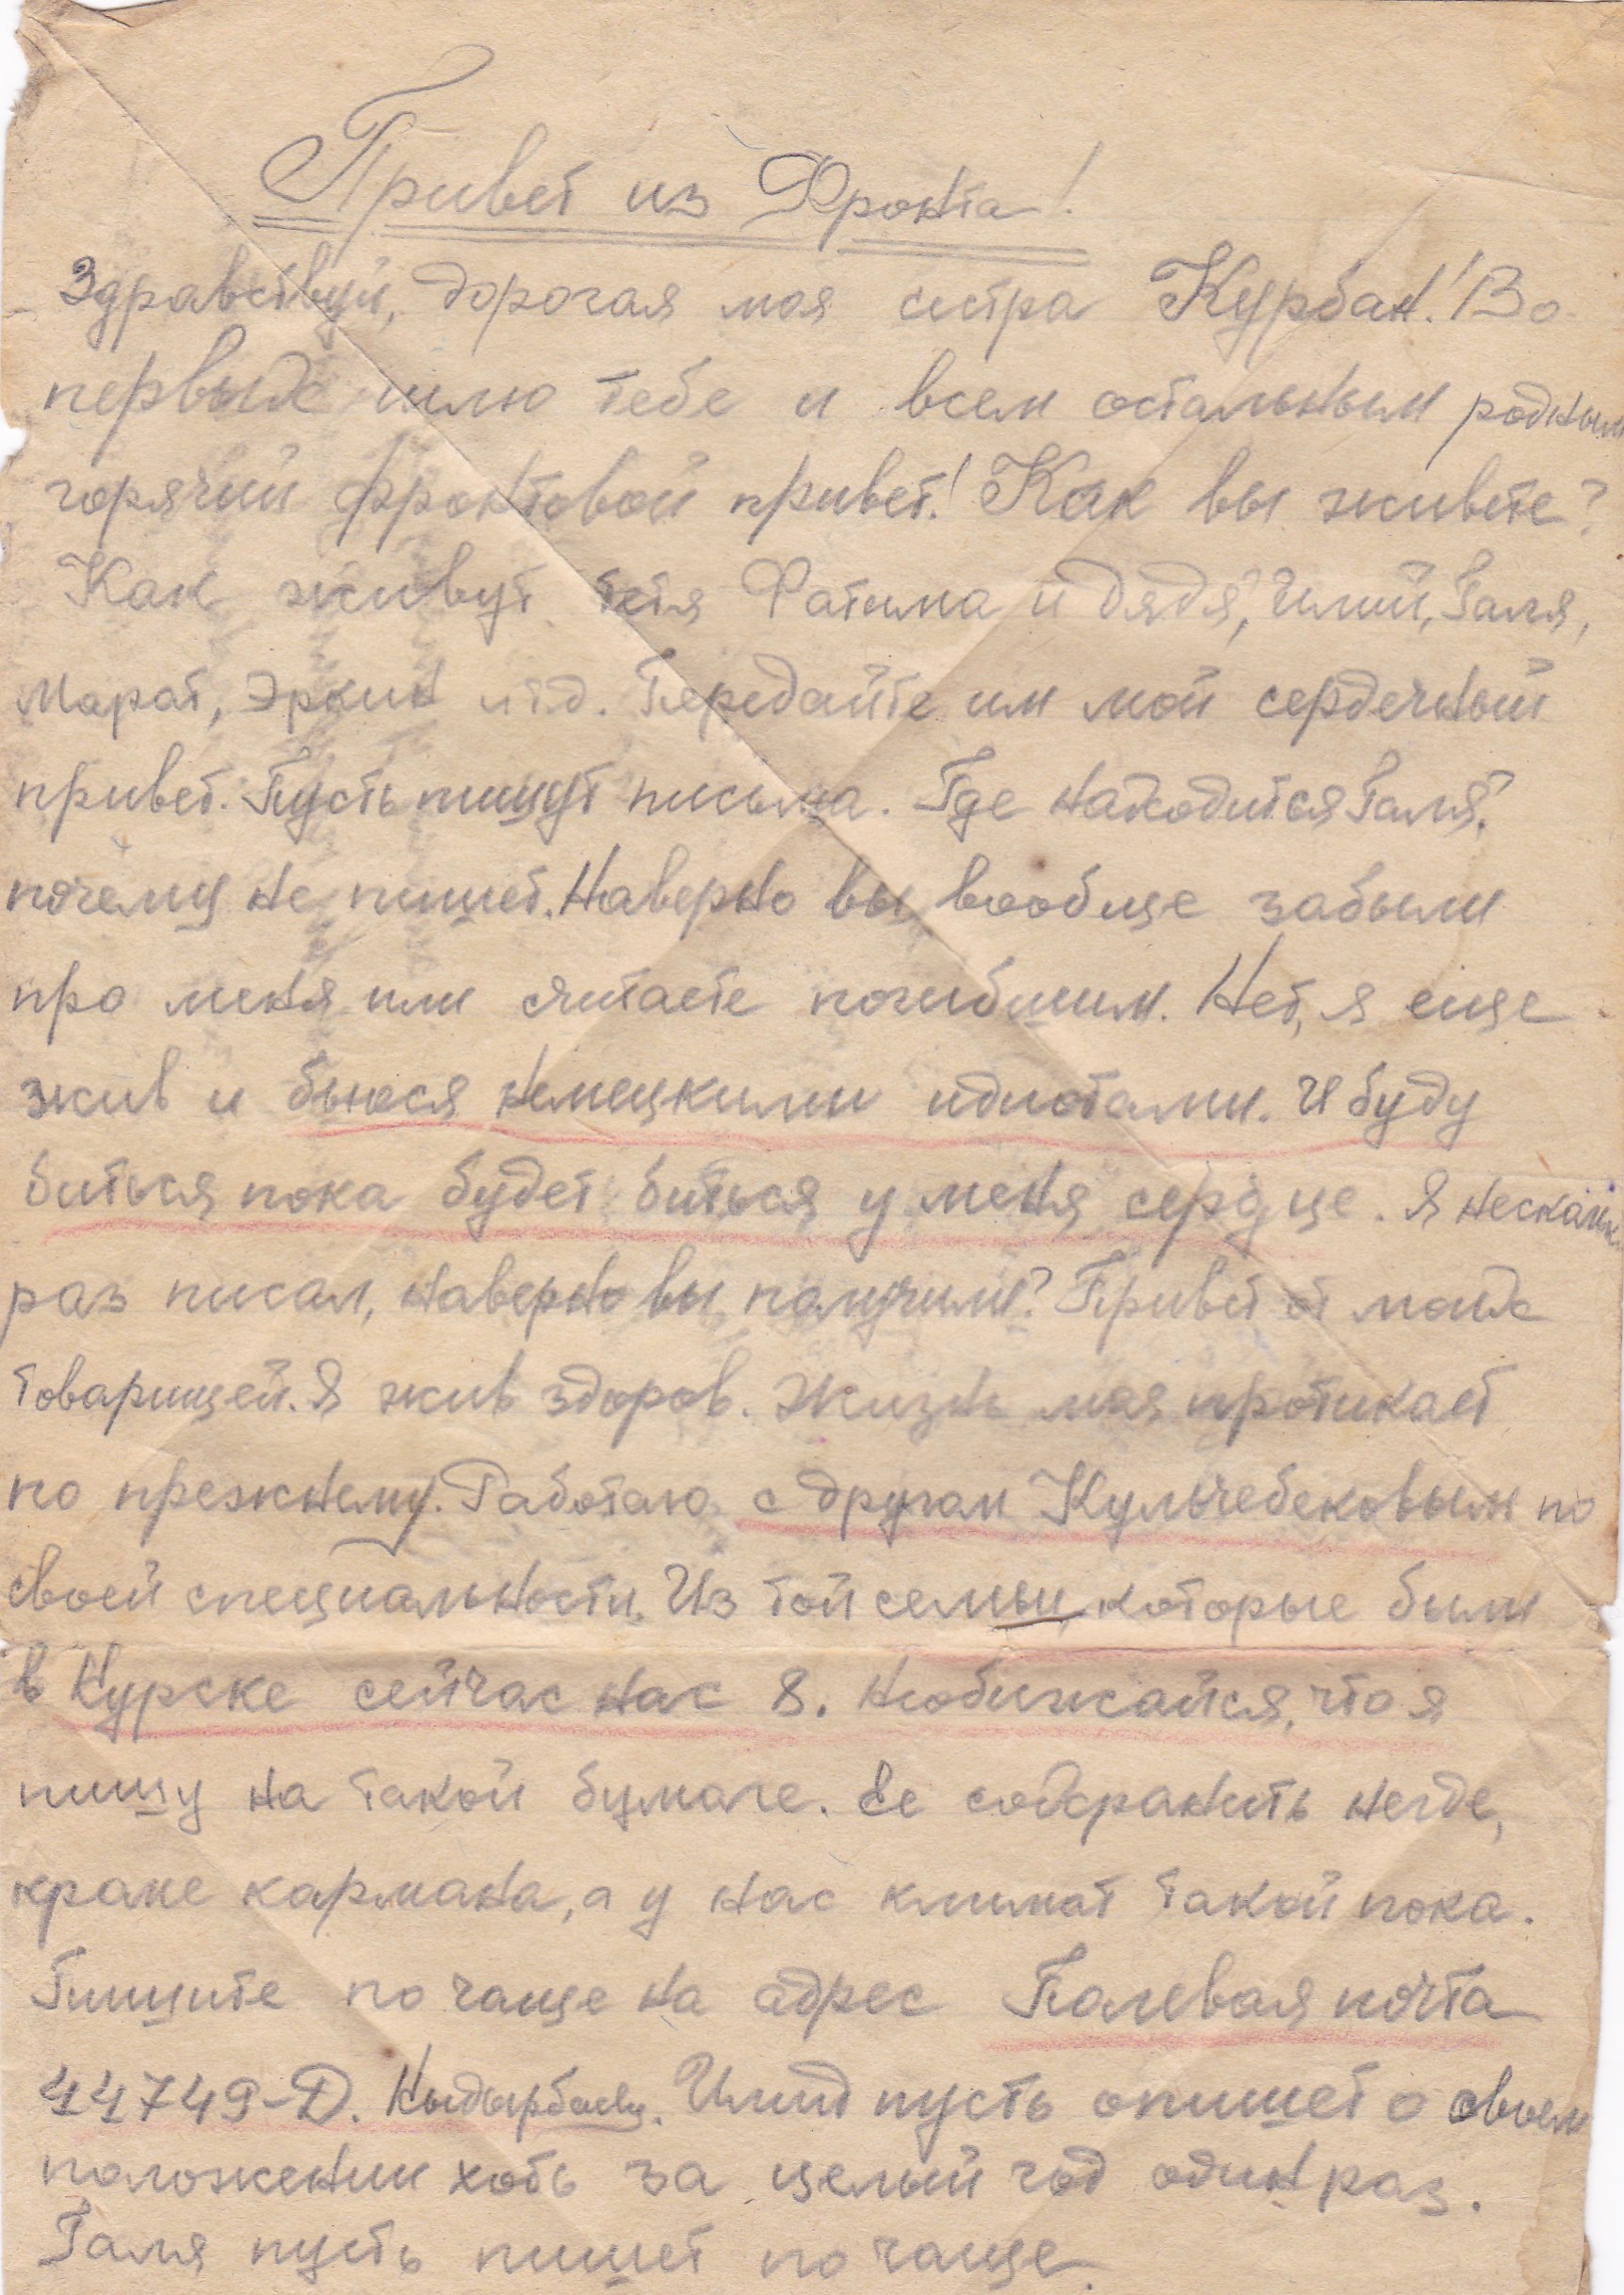 Привет из Фронта!
Здравствуй, дорогая моя сестра Курбан! Во
первых шлю тебе и всем остальным родным
горячий фронтовой привет! Как вы живете?
Как живут тетя Фатима и дядя, Чмий, Галя,
Марат, Эркин и тд. Передайте им мой сердечный
привет. Пусть пишут письма. Где находится Галя?
почему не пишет. Наверно вы вообще забыли
про меня или считаете погибшим. Нет, я еще
жив и бьюся немецкими идиотами. И буду
биться пока будет биться у меня сердце. Я несколк.
раз писал, наверно вы получили? Привет от моих
товарищей. Я жив здоров. Жизнь моя протикает
по прежнему. Работаю с другом Кульчебековым по
своей специальности. Из той семьи, которые были
в Курске сейчас нас 8. Необижайся, что я
пишу на такой бумаге. Ее сохранить негде,
кроме кармана, а у нас климат такой пока.
Пишите по чаще на адрес Полевая почта
44749-Д. Кыдырбаеву. пусть опишет о своем
положении хоть за целый год один раз.
Галя пусть пишет по чаще.